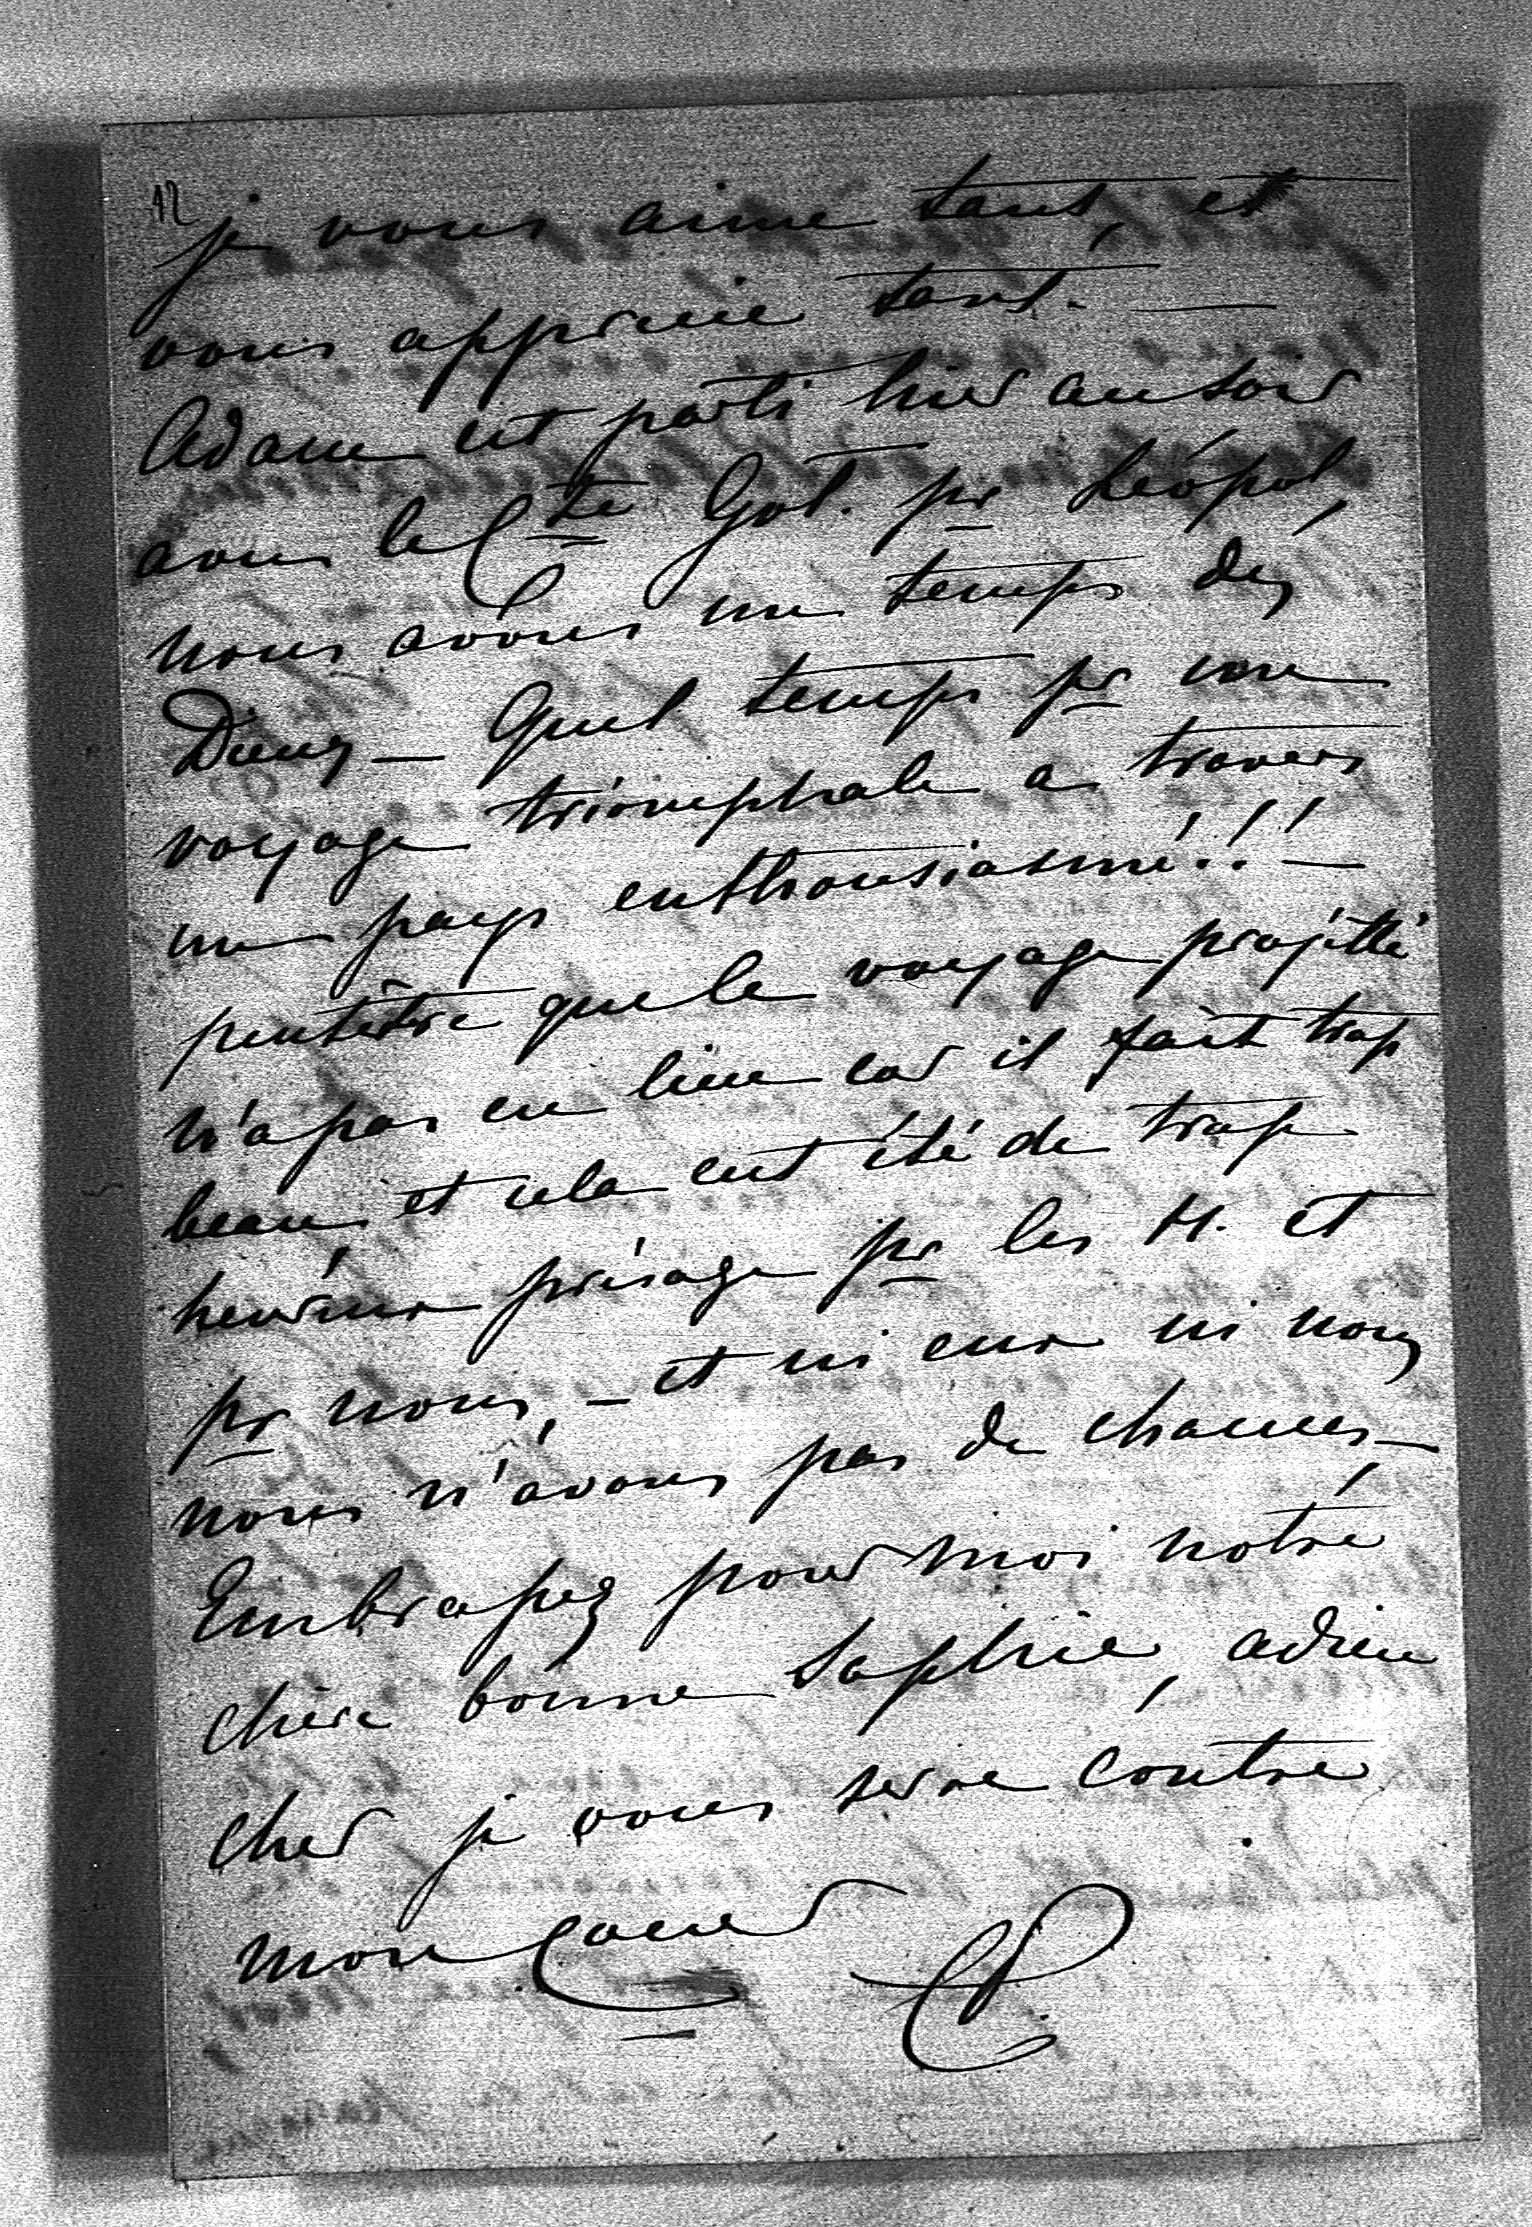 12
je vous aime tant, et
vous apprecie tant. —
Adam est parti hier au soir
avec le Cte Gol. pr Léopol,
nous avons un temps des
Dieux — Quel temps pr un
voyage triomphale a travers
un pays enthousiasmé!! —
peutêtre que le voyage projetté
n'a pas eu lieu car il fait trop
beau et cela eut été de trop
heureux présage pr les H. et
pr nous, — et ni eux ni nous
nous n'avons pas de chances —
Embrassez pour moi notre
chère bonne Sophie, adieu
cher je vous serre contre
mon Coeur